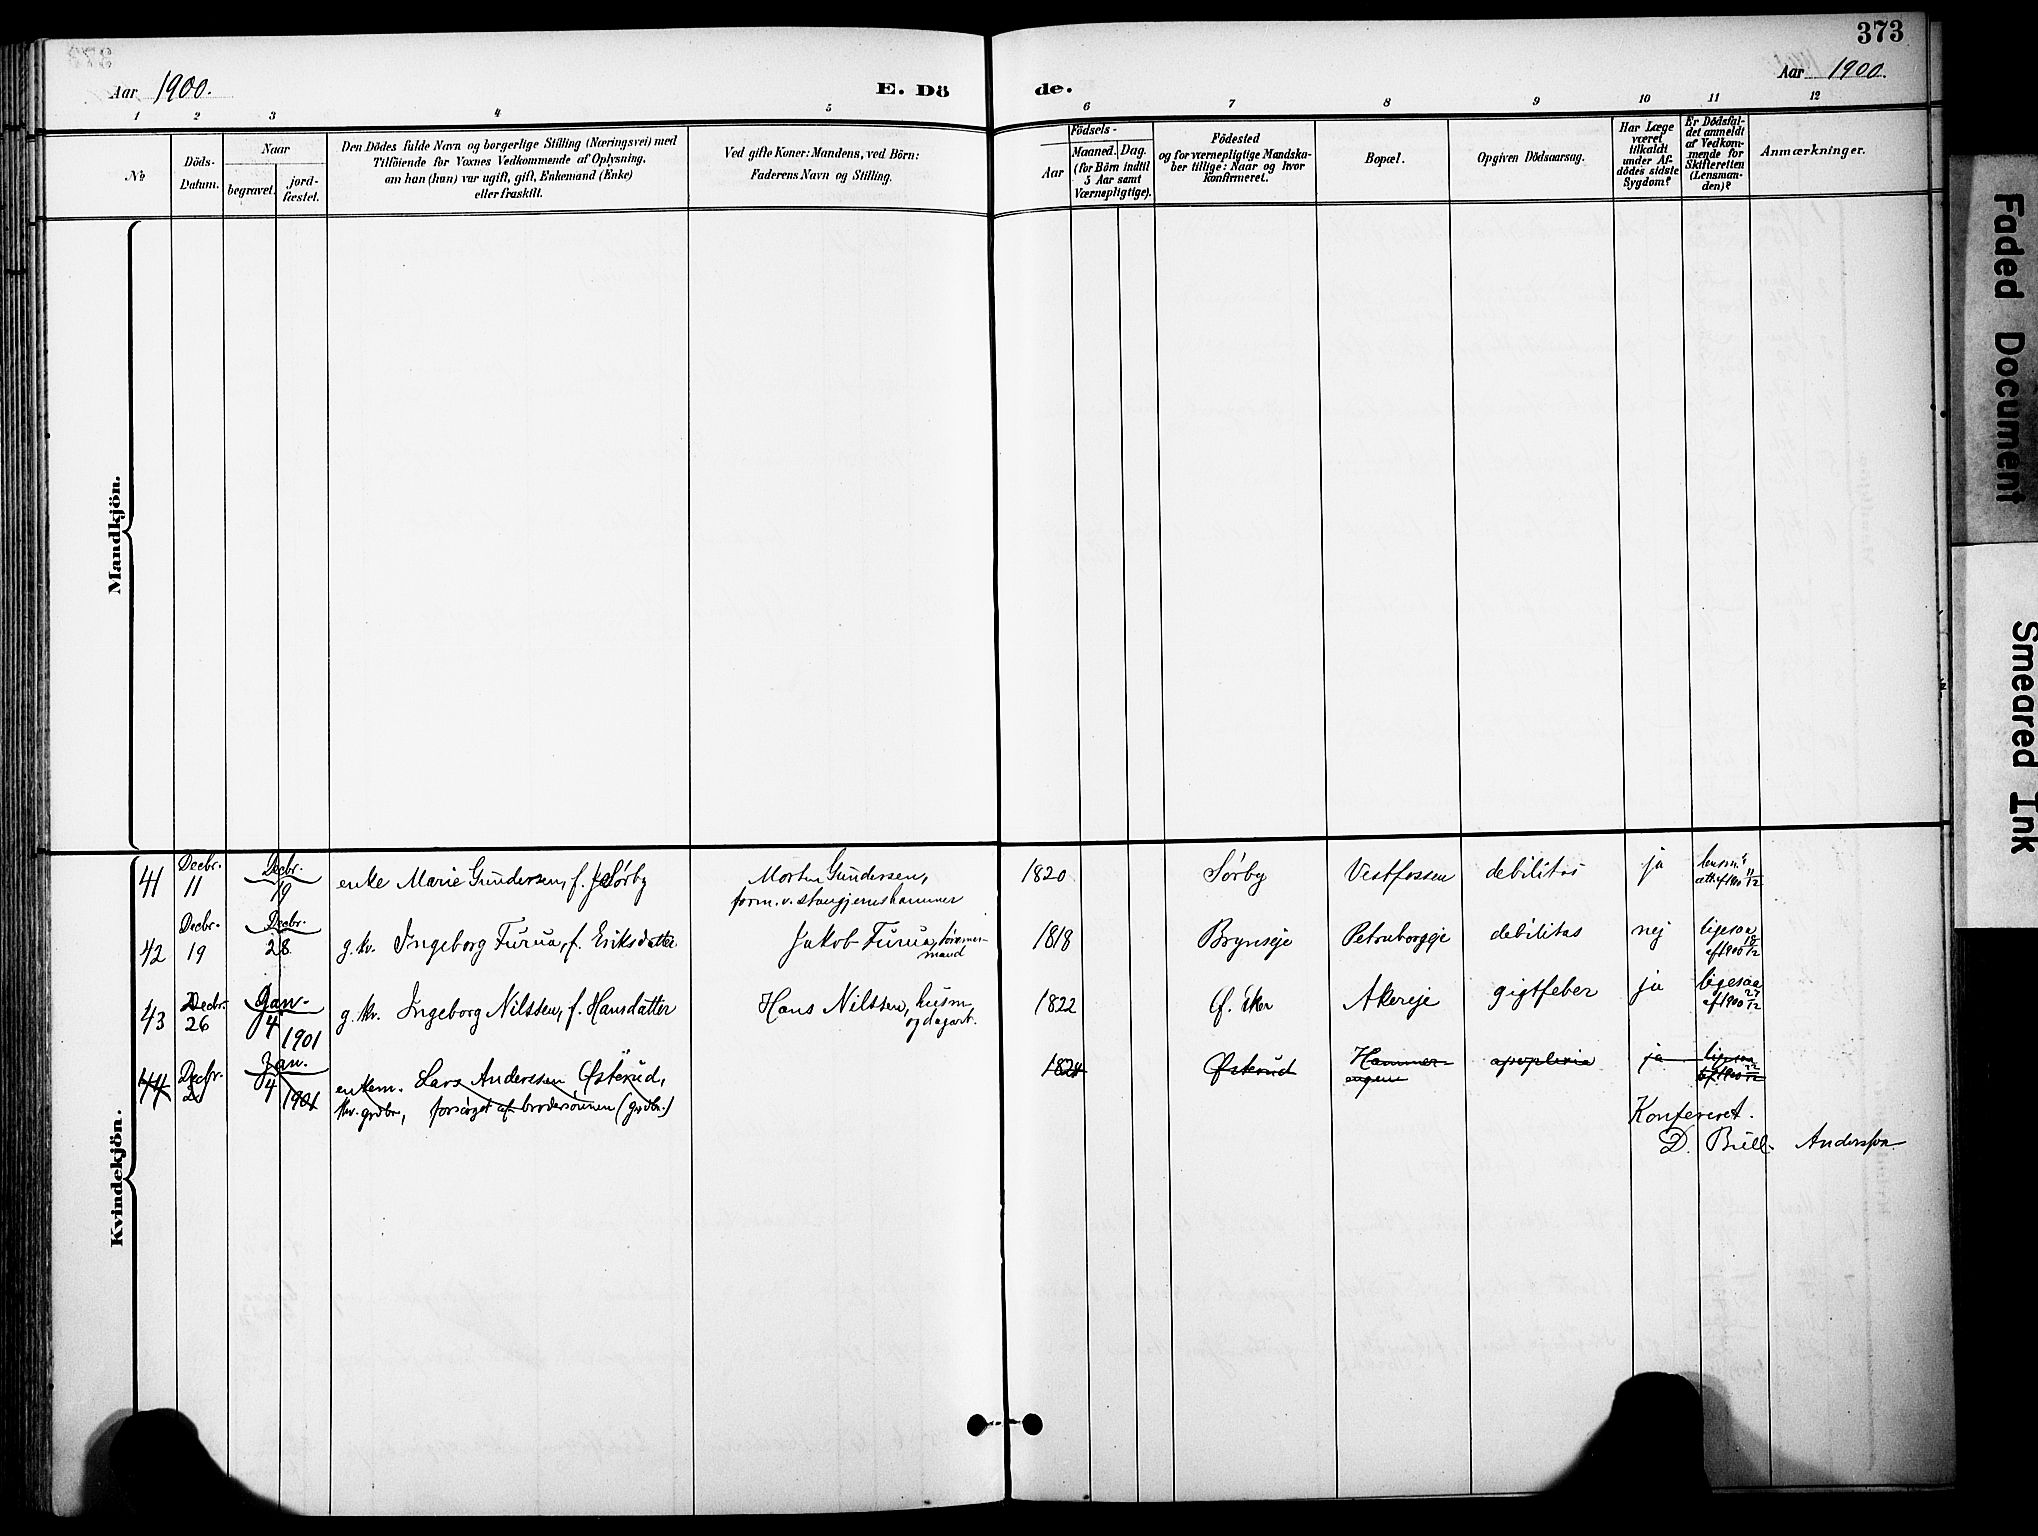 373
Aar 1900.
E. Dö de.
Aar 1900.
1 2 3 4 5 6 7 8 9 10 11 12
No
Döds-
Datum.
Naar
begravet.
jord-
fæstet.
Den Dödes fulde Navn og borgerlige Stilling (Næringsvei) med
Tilföiende for Voxnes Vedkommende af Oplysning,
om han (hun) var ugift, gift, Enkemand (Enke)
eller fraskilt.
Ved gifte Koner: Mandens, ved Börn:
Faderens Navn og Stilling.
Födsels-
Aar
Maaned. Dag.
(for Börn indtil
5 Aar samt
Værnepligtige).
Födested
og for værnepligtige Mandska-
ber tillige: Naar og hvor
konfirmeret.
Bopæl.
Opgiven Dödsaarsag.
Har Læge
været
tilkaldt
under Af-
dödes sidste
Sygdom?
Er Dödsfal-
det anmeldt
af Vedkom-
mende for
Skifteretten
(Lensman-
den)?
Anmærkninger.
Mandkjön.
Kvindekjön.
41
Decbr.
11
Decbr.
19
enke Marie Gundersen, f. Sørby
Morten Gundersen,
form. v. stangjernshammer
1820
Sørby
Vestfossen
debilitas
ja
42
Decbr.
19
Decbr.
28
g. kv. Ingeborg Furua, f. Eriksdatter
Jakob Furua, tømmer-
mand
1818
Brynseje
debilitas
nej
ligesaa
43
Decbr.
26
Jan.
4
1901
g. kv. Ingeborg Nilssen, f. Hansdatter
Hans Nilssen, husm.
og dagarb.
1822
Ø. Eker
Akereje
gigtfeber
ja
ligesaa
44
Decbr.
Jan.
4
1901
enkem. Lars Anderssen Østerud,
kv. grdbr., forsørget af brodersønnen (grdbr.)
Østerud
Hammer-
engene
apoplexia
ja
ligesaa
Konfereret.
D. Bull. Anderssen
Faded Document
Smeared Ink